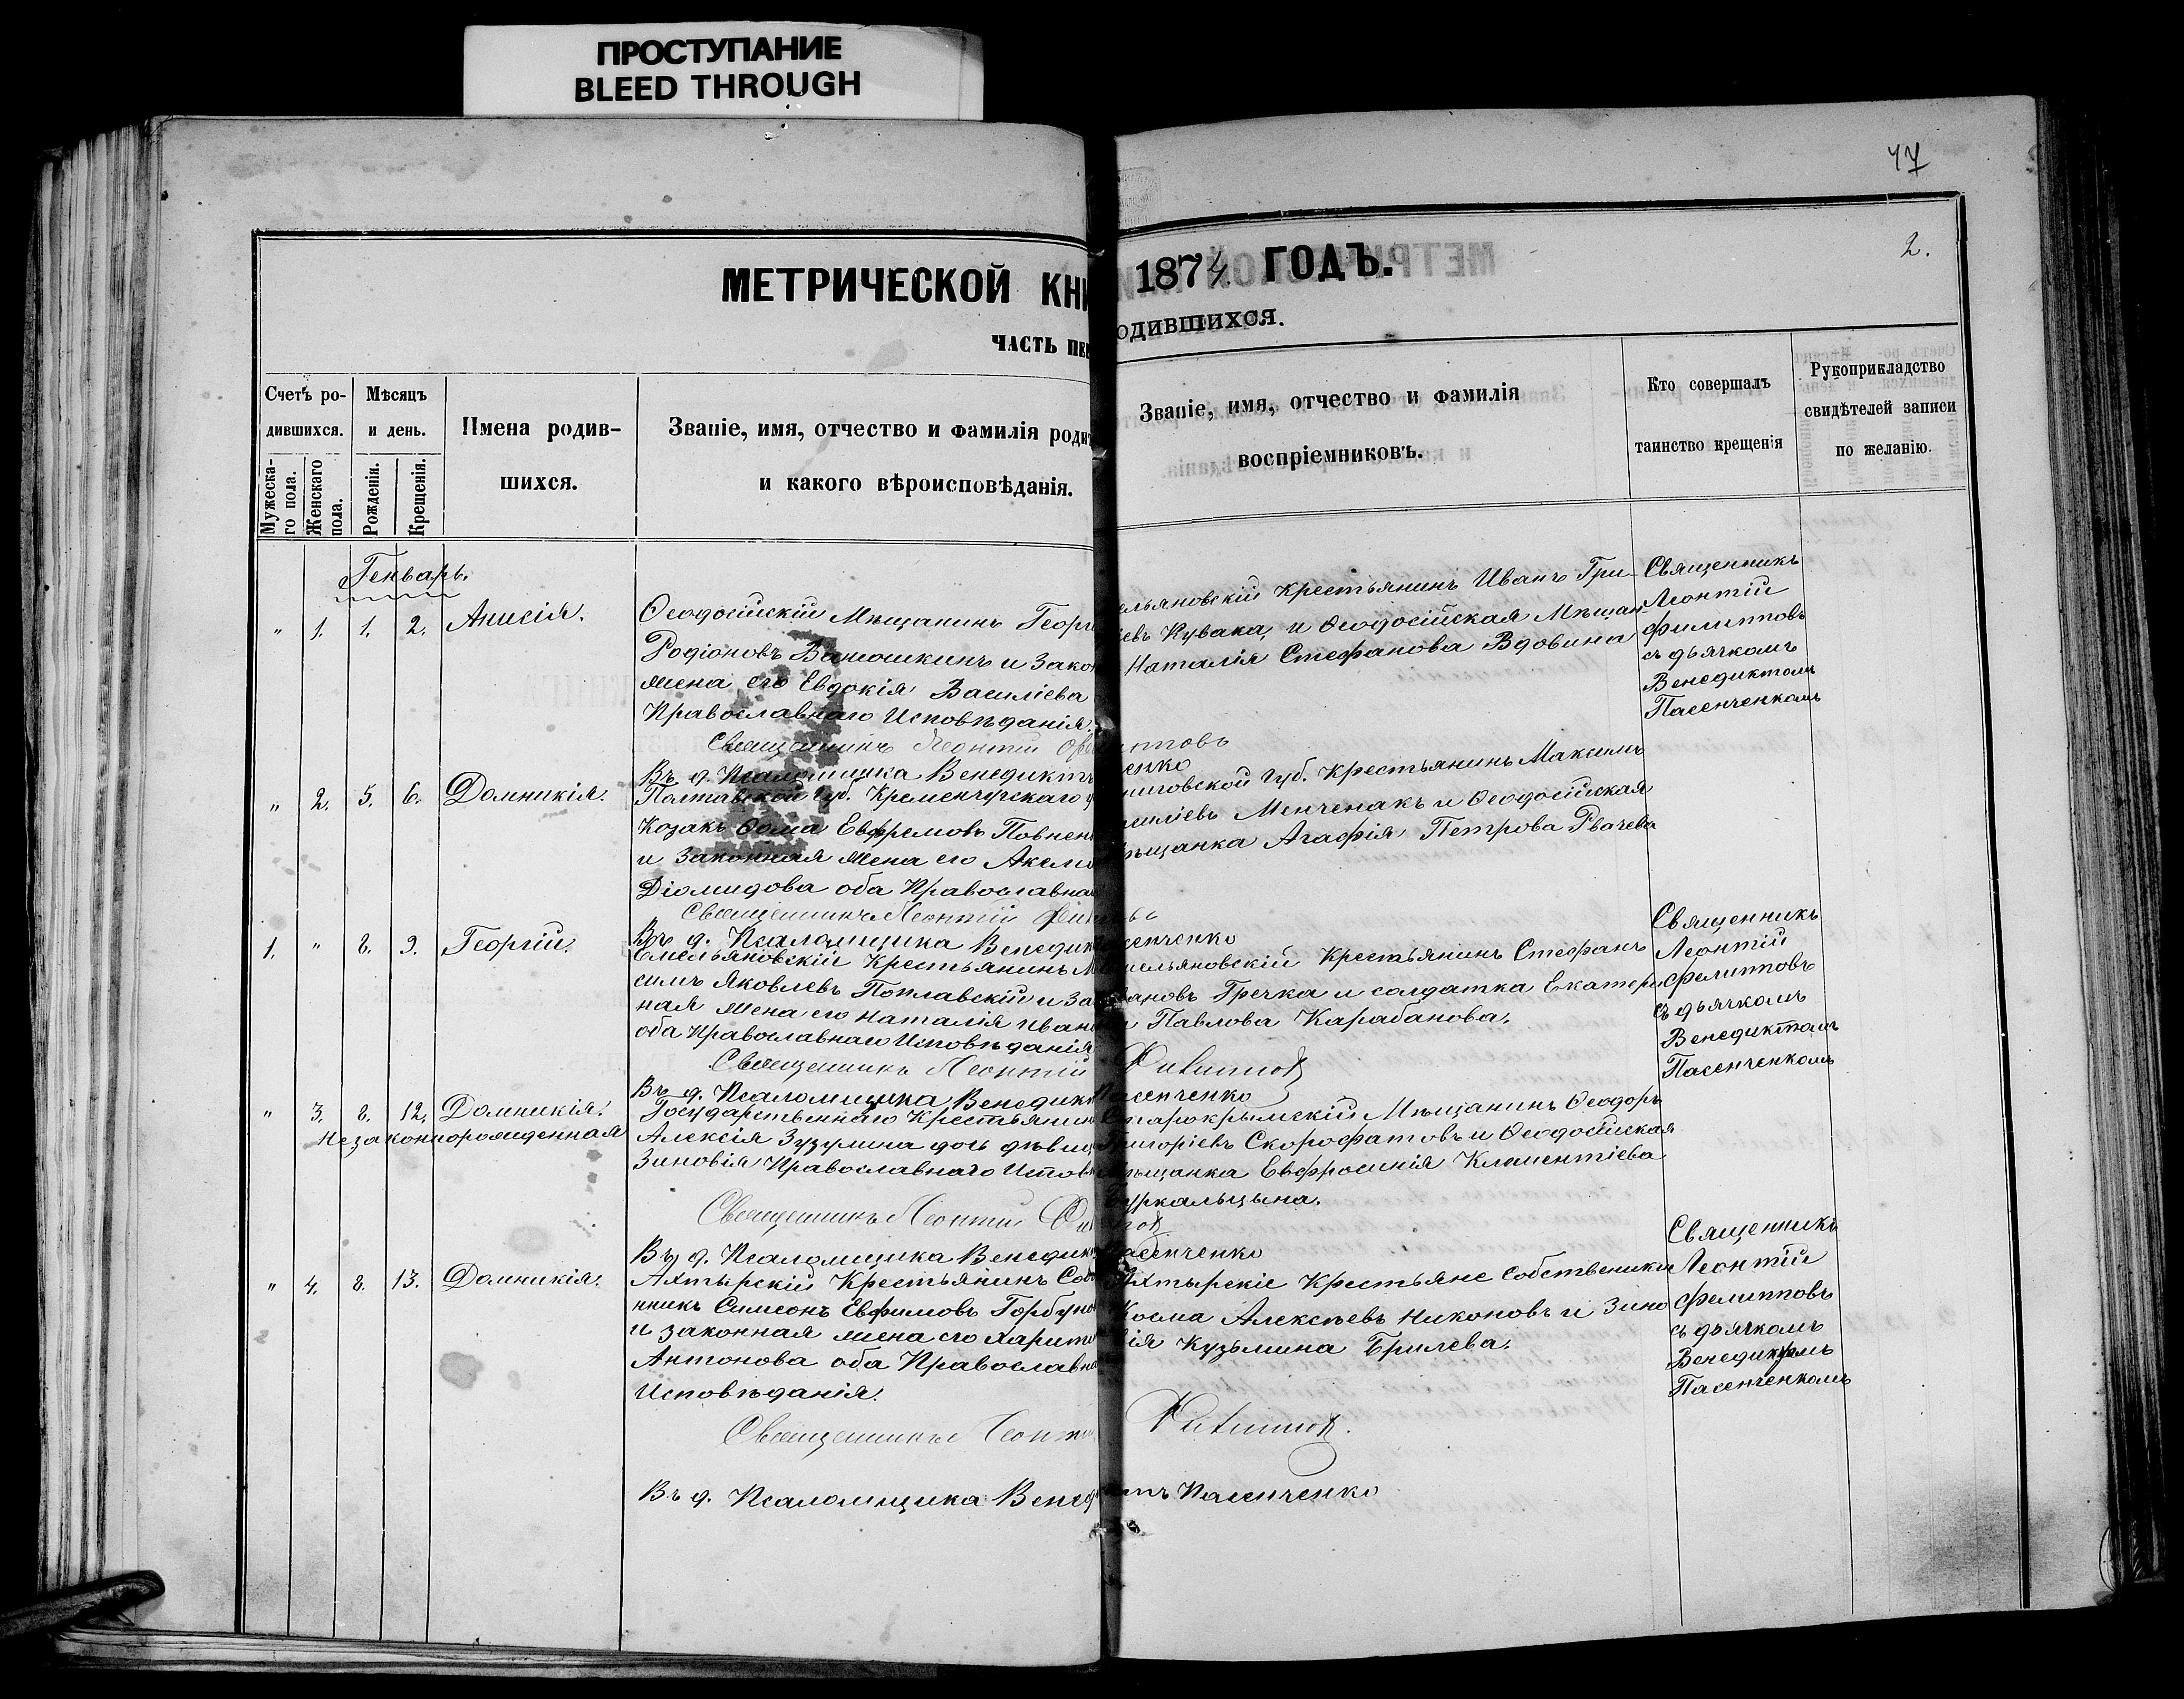 ПРОСТУПАНИЕ
BLEED THROUGH
47
2.
МЕТРИЧЕСКОЙ КНИ
1874 ГОДЪ.
ЧАСТЬ ПЕР
ОДИВШИХСЯ.
Счетъ ро-
дившихся.
Мужеска-
го пола.
Женскаго
пола.
Мѣсяцъ
и день.
Рожденія.
Крещенія.
Имена родив-
шихся.
Званіе, имя, отчество и фамилія роди
и какого вѣроисповѣданія.
Званіе, имя, отчество и фамилія
воспріемниковъ.
Кто совершалъ
таинство крещенія
Рукоприкладство
свидѣтелей записи
по желанію.
Генварь.
" 1. 1. 2. Анисія.
Ѳеодосійскій Мѣщанинъ Георг
Родіоновъ Ванюшкинъ и закон
жена его Евдокія Василіева
Православнаго Исповѣданія.
ельяновскій Крестьянинъ Иванъ Гри-
іевъ Кувака, и Ѳеодосійская Мѣщан-
Наталія Стефанова Вдовина
Священникъ
Леонтій
Филипповъ
съ дьячкомъ
Венедиктомъ
Пасенченкомъ
Священникъ Леонтій Фи
пповъ
Въ д. Псаломщика Венедиктъ
енко
" 2. 5. 6. Домникія.
Полтавской Губ. Кременчугскаго у
Козакъ Ѳома Евфремовъ Повнен
и законная жена его Аксин
Діомидова оба Православна
ниговской Губ. Крестьянинъ Максимъ
силіевъ Менченакъ и Ѳеодосійская
ѣщанка Агафія Петрова Рвачева
Священникъ Леонтій Фил
въ
Въ д. Псаломщика Венедик
сенченко
1. " 8. 9. Георгій.
Емельяновскій Крестьянинъ М
симъ Яковлевъ Поплавскій и зак
ная жена его Наталія Иван
оба Православнаго Исповѣданія
мельяновскій Крестьянинъ Стефанъ
вановъ Гречка и солдатка Екатери
а Павлова Карабанова.
Священникъ
Леонтій
Филипповъ
съ дьячкомъ
Венедиктомъ
Пасенченкомъ
Священникъ Леонтій
Филипповъ
Въ д. Псаломщика Венедикт
Пасенченко
" 3. 8. 12. Домникія.
Незаконнорожденная
Государственнаго Крестьянин
Алексія Зузулина дочь дѣвиц
Зиновія Православнаго Исповѣ
Старокрымскій Мѣщанинъ Ѳеодоръ
Григоріевъ Скорофатовъ и Ѳеодосійская
Мѣщанка Евфросинія Климентіева
Буркальцына.
Священникъ Леонтій Фил
повъ
Въ д. Псаломщика Венедик
Пасенченко
" 4. 8. 13. Домникія.
Ахтырскій Крестьянинъ Соб
нникъ Симеонъ Евфимовъ Горбуно
и законная жена его Харити
Антонова оба Православна
Исповѣданія.
Ахтырскіе Крестьяне Собственики
Косма Алексѣевъ Никоновъ и Зино
вія Кузьмина Брилева.
Священникъ
Леонтій
Филипповъ
съ дьячкомъ
Венедиктомъ
Пасенченкомъ
Священникъ Леонті
Филипповъ.
Въ д. Псаломщика Венед
иктъ Пасенченко